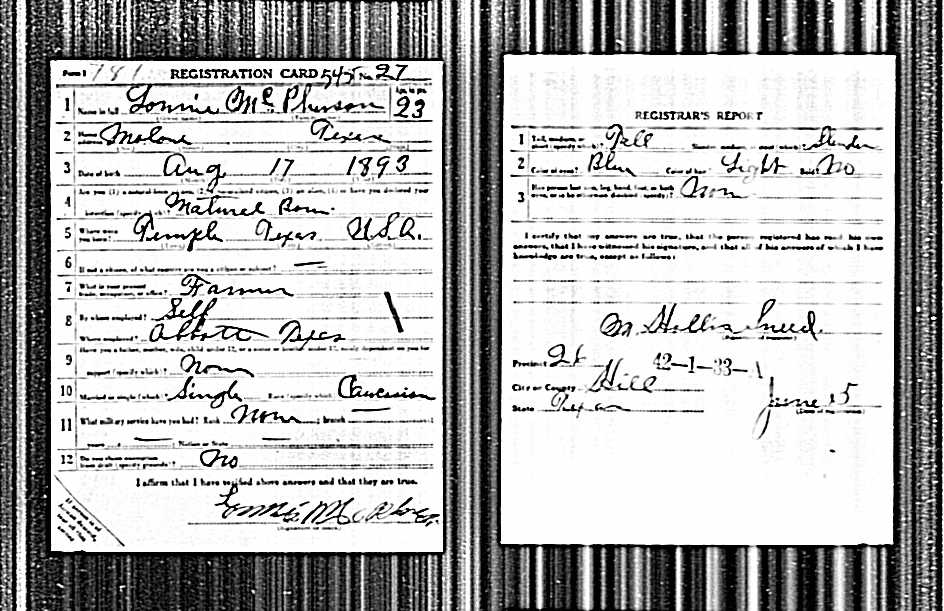 Form 1 781 REGISTRATION CARD 545 No. 27
1 Name in full Lonnie McPherson Age, in yrs. 23
2 Home address Malone Texas
3 Date of birth Aug 17 1893
4 Are you (1) a natural-born citizen, (2) a naturalized citizen, (3) an alien, (4) or have you declared your
intention (specify which)? Natural Born
5 Where were you born? Temple Texas U.S.A.
6 If not a citizen, of what country are you a citizen or subject? —
7 What is your present trade, occupation, or office? Farmer
8 By whom employed? Self
Where employed? Abbott Texas
9 Have you a father, mother, wife, child under 12, or a sister or brother under 12, solely dependent on you for
support (specify which)? None
10 Married or single (which)? Single Race (specify which)? Caucasian
11 What military service have you had? Rank None ; branch —
years — ; Nation or State —
12 Do you claim exemption from draft (specify grounds)? No
I affirm that I have verified above answers and that they are true.
Lonnie McPherson
(Signature or mark)
REGISTRAR'S REPORT
1 Tall, medium, or short (specify which)? Tall Slender, medium, or stout (which)? Slender
2 Color of eyes? Blue Color of hair? Light Bald? No
3 Has person lost arm, leg, hand, foot, or both eyes, or is he otherwise disabled (specify)? None
I certify that my answers are true, that the person registered has read his own
answers, that I have witnessed his signature, and that all of his answers of which I have
knowledge are true, except as follows:
M. Hollis Sneed
(Signature of registrar)
Precinct 26 42-1-33-A
City or County Hill
State Texas June 5
(Date of registration)